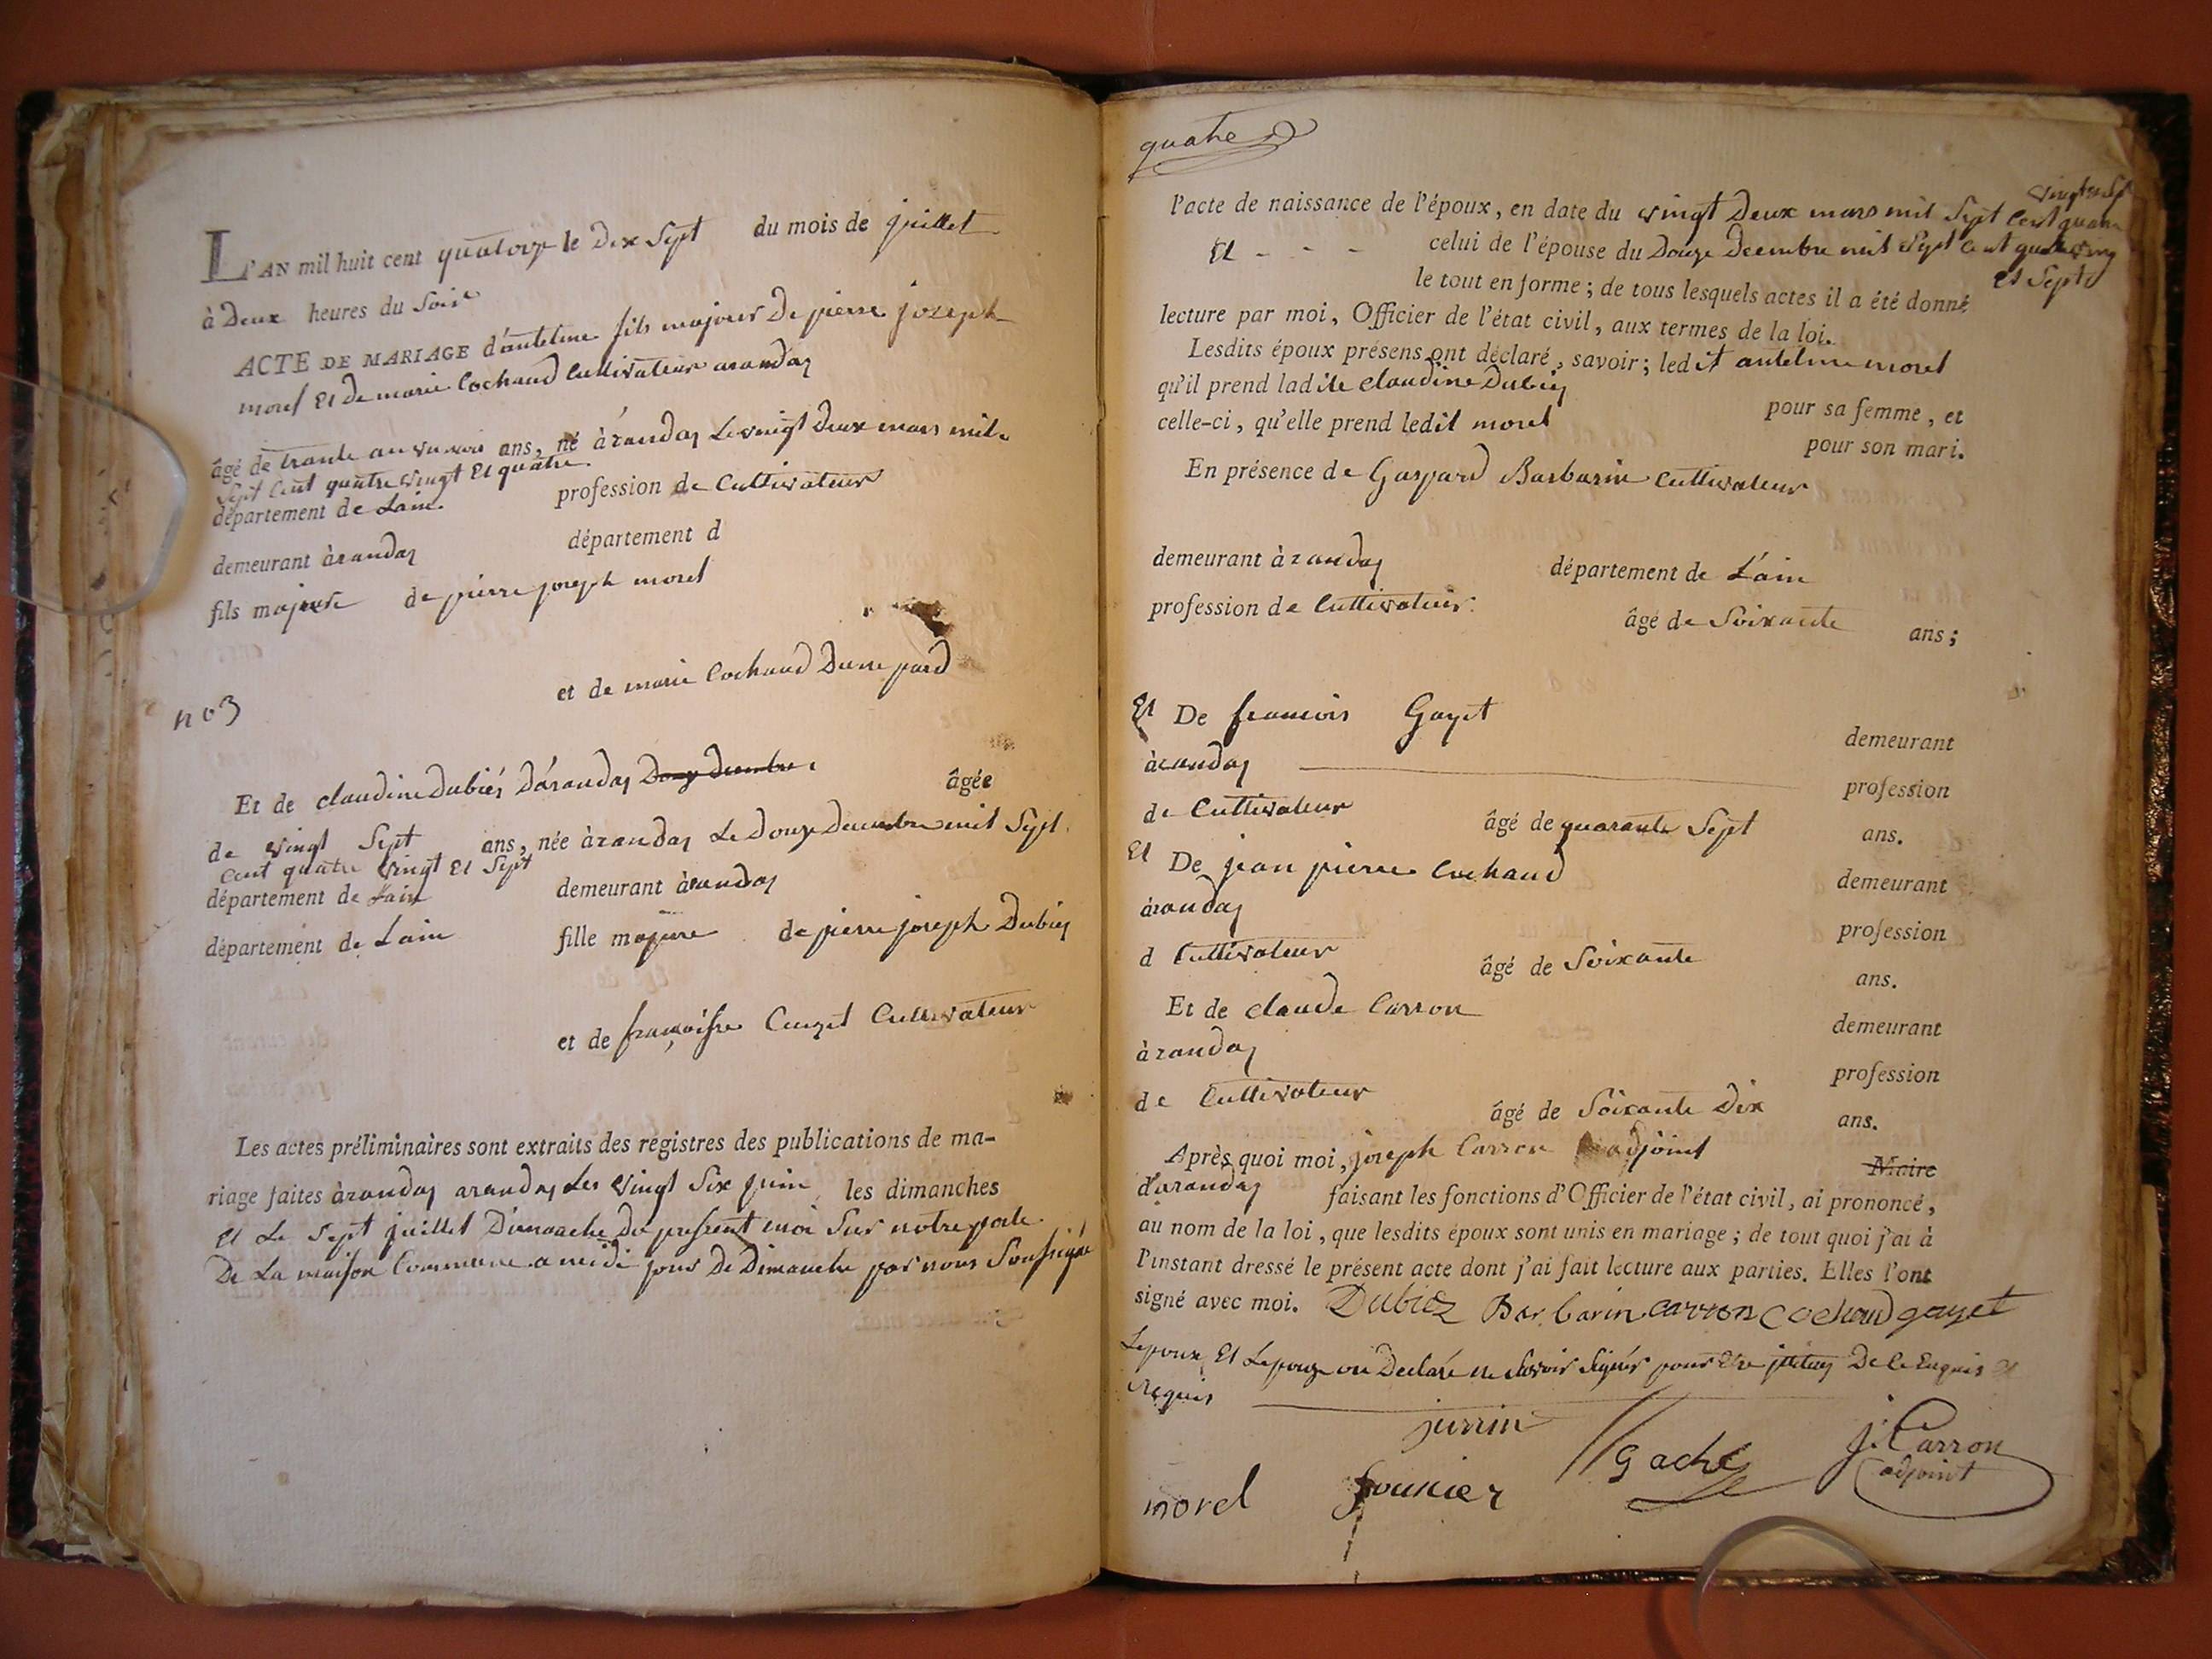 L'AN mil huit cent quatorze le Dix Sept du mois de juillet
à Deux heures du Soire
ACTE DE MARIAGE d'antelme fils majeur De pierre joseph
morel Et de marie Cochaud Cultivateur arandas
âgé de trante ans, né àrandas Le vingt deux mars mil
Sept Cent quatre vingt Et quatre
département de Lain. profession de Cultivateur
demeurant àrandas département d
fils majeur de pierre joseph morel
et de marie Cochaud
no 3
Et de claudine Dubiés D'arandas Douze Decembre âgée
de vingt Sept ans, née àrandas Le Douze Decembre mil Sept
Cent quatre vingt Et Sept
département de Lain demeurant àrandas
département de Lain fille majeure de pierre joseph Dubiez
et de françoisse Cultivateur
Les actes préliminaires sont extraits des registres des publications de ma-
riage faites àrandas arandas Les vingt Six juin les dimanches
Et Le Sept juillet Dimanche Du present moi Sur notre porte
De La maison Commune a midi jour De Dimanche par nous Soussigné
quatre
l'acte de naissance de l'époux, en date du vingt Deux mars mil Sept Cent quatre
Et - - - celui de l'épouse du Douze Decembre mil Sept Cent quatre ving
et Sept
le tout en forme ; de tous lesquels actes il a été donné
lecture par moi, Officier de l'état civil, aux termes de la loi.
Lesdits époux présens ont déclaré, savoir ; ledit antelme morel
qu'il prend ladite claudine Dubiez pour sa femme, et
celle-ci, qu'elle prend ledit morel pour son mari.
En présence de Gaspard Barbarin Cultivateur
demeurant àrandas département de L'ain
profession de Cultivateur âgé de Soixante ans ;
Et De francois Gayet demeurant
àrandas profession
de Cultivateur âgé de quarante Sept ans.
Et De jean pierre Cochaud demeurant
àrandas profession
d Cultivateur âgé de Soixante ans.
Et de claude Carron demeurant
àrandas profession
de Cultivateur âgé de Soixante Dix ans.
Après quoi moi, joseph Carron adjoint Maire
d'arandas faisant les fonctions d'Officier de l'état civil, ai prononcé,
au nom de la loi, que lesdits époux sont unis en mariage ; de tout quoi j'ai à
l'instant dressé le présent acte dont j'ai fait lecture aux parties. Elles l'ont
signé avec moi. Dubiez Barbarin carron Cochaud gayet
Lepoux Et Lepouze on Declaré ne Savoir Signér pour De Ce Enquis Et
Requis
jurrin
morel founier Gache J. Carron
adjoint